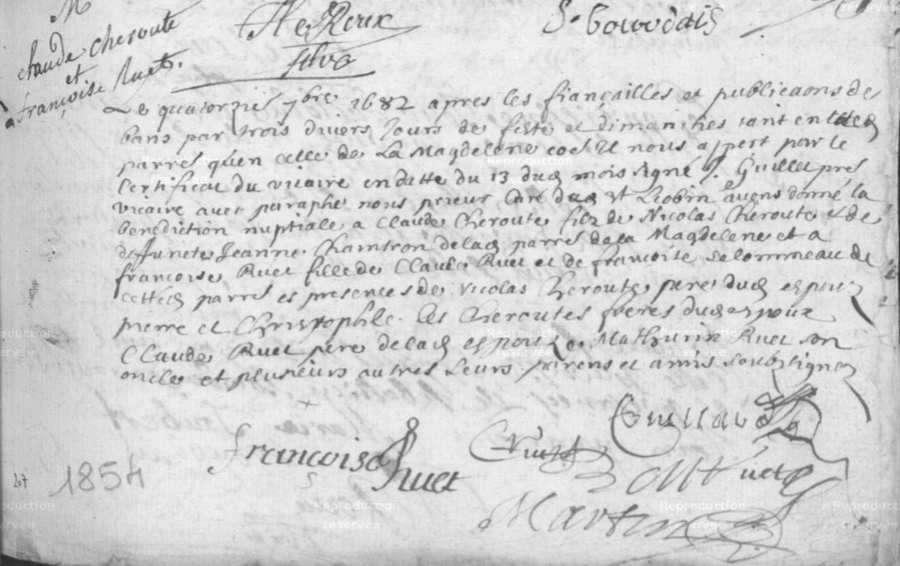 M
claude cheroute
et
françoise Ruet.
Le Roux
S. bouvdais
Le quatorzies 7bre 1682 apres les fiançailles et publicaons de
bans par trois divers Jours de feste et dimanches tant en
parres qu'en celle de La Magdelene co il nous apert par le
Certificat du vicaire en datte du 13 dud mois signé J. Guillet pres
vicaire avec paraphe nous prieur Curé dud St Liobin avons donné la
benediction nuptiale a Claude Cheroute filz de Nicolas Cheroute et de
defuncte Jeanne Chantron delad parres de la Magdelene et a
francoise Ruet fille de Claude Ruet et de francoise Selommeau de
cette parres es presences de Nicolas Cheroute pere dud espoux
pierre et Christophle les Cheroutes freres dud espoux
Claude Ruet pere de lad espouze Mathurin Ruet son
oncle et plusieurs autres leurs parens et amis soubsignez
françoise Ruet
C Ruet
M Ruet
Martin
207
1854
Reproduction